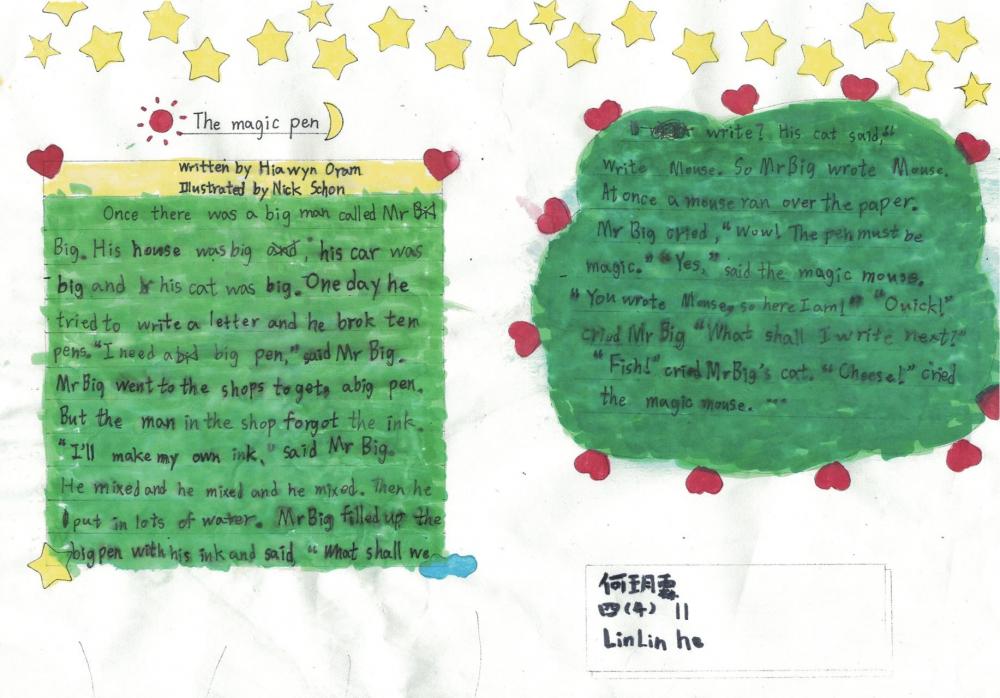 The magic pen
Written by Hiawyn Oram
Illustrated by Nick Schon
Once there was a big man called Mr
Big. His house was big, his car was
big and his cat was big. One day he
tried to write a letter and he brok ten
pens. "I need a big pen," said Mr Big.
Mr Big went to the shops to get a big pen.
But the man in the shop forgot the ink.
"I'll make my own ink," said Mr Big.
He mixed and he mixed and he mixed. Then he
put in lots of water. Mr Big filled up the
big pen with his ink and said, "What shall we
write? His cat said,"
write Mouse. So Mr Big wrote Mouse.
At once a mouse ran over the paper.
Mr Big cried, "Wow! The pen must be
magic." "Yes," said the magic mouse.
"You wrote Mouse, so here I am!" "Quick!"
cried Mr Big "What shall I write next?"
"Fish!" cried Mr Big's cat. "Cheese!" cried
the magic mouse.
何玥霖
四(4) 11
LinLin he